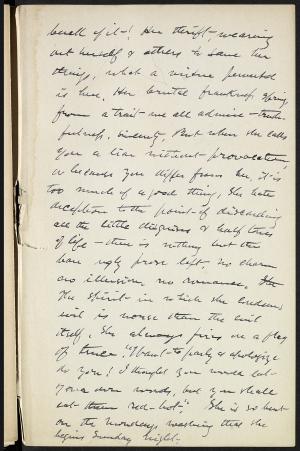 benefit of it! Her thrift - wearing
out herself & others to save her
things, what a virtue perverted
is here. Her brutal frankness spring
from a trait we all admire - truth-
fulness, sincerity, But when she calls
you a liar without provocation,
or because you differ from her, it is
too much of a good thing, She hates
deception to the point of discarding
all the little disguises & half tones
of life - there is nothing but the
bare ugly prose left, no charm
no illusion, no romance.
The spirit in which she endures
evil is worse than the evil
itself. She always fires on a flag
of truce. "Want to parley & apologize
do you! I thought you would eat
your own words, but you shall
eat them red-hot." She is so bent
on the Monday's washing that she
begins Sunday night.